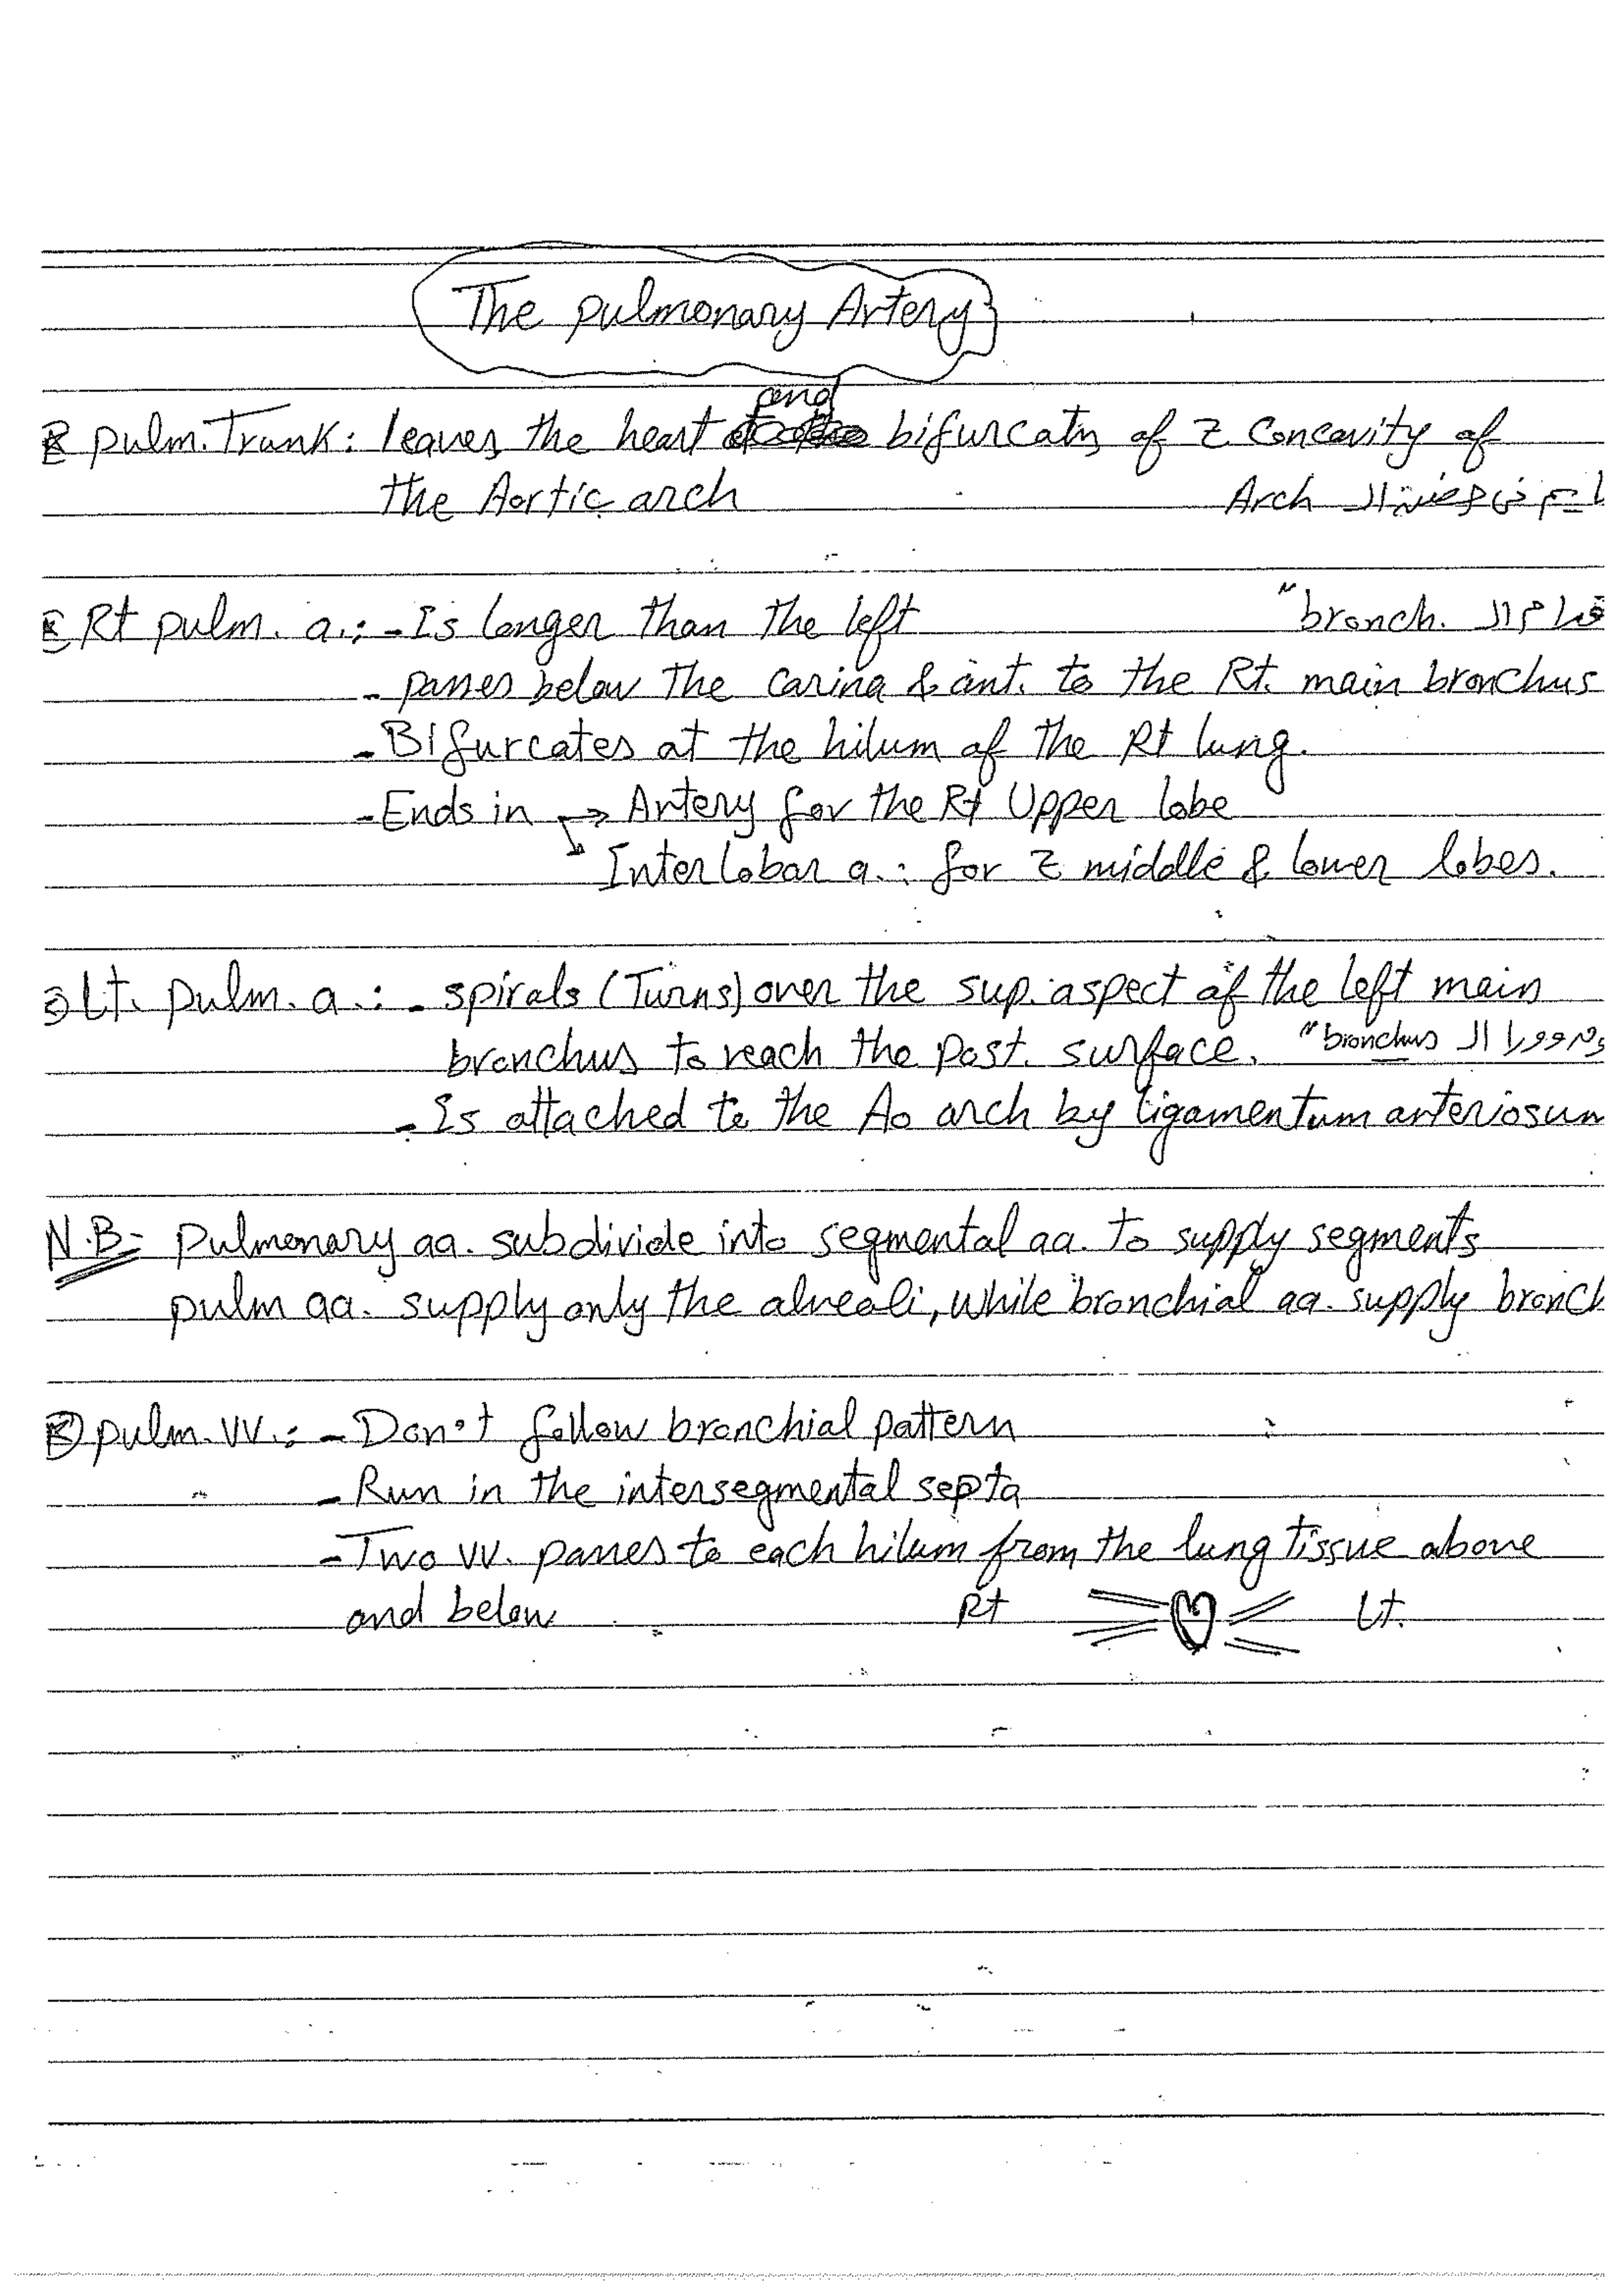 The pulmonary Artery
and
pulm. Trunk: leaves the heart bifurcatn of z concavity of
the Aortic arch Arch
Rt pulm. a.: - Is longer than the left "bronch. قدام ال
- passes below The carina & ant. to the Rt. main bronchus
- Bifurcates at the hilum of the Rt lung.
- Ends in → Artery for the Rt Upper lobe
Interlobar a.: for z middle & lower lobes.
Lt. pulm. a.: - spirals (Turns) over the sup. aspect of the left main
bronchus to reach the post. surface. "bronchus ال
- Is attached to the Ao arch by ligamentum arteriosum
N.B:- Pulmonary aa. subdivide into segmental aa. to supply segments
pulm aa. supply only the alveoli, while bronchial aa. supply bronch
pulm. vv.: - Don't follow bronchial pattern
- Run in the intersegmental septa
- Two vv. passes to each hilum from the lung tissue above
and below Rt Lt.